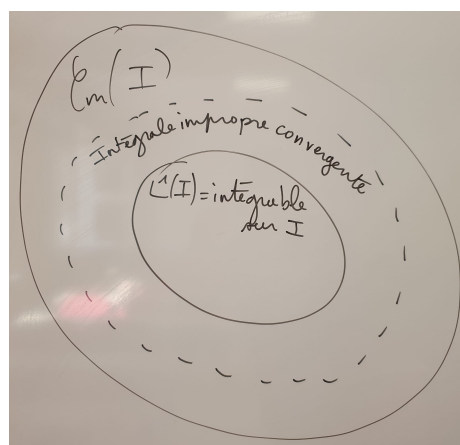 𝒞m(I)
Intégrale impropre convergente
L¹(I) = intégrable
sur I